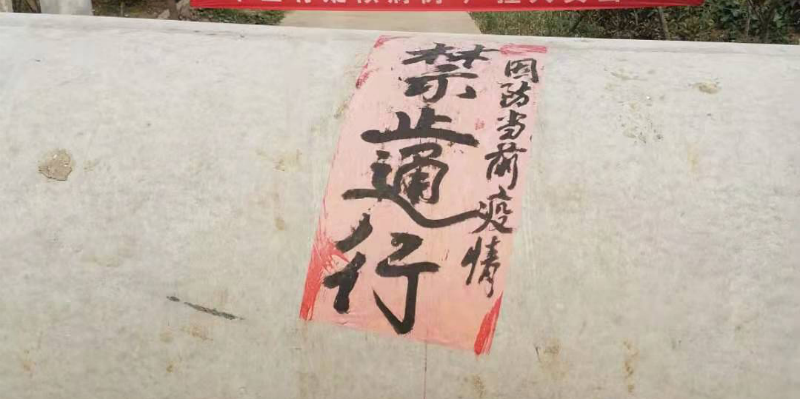 因防当前疫情
禁止通行